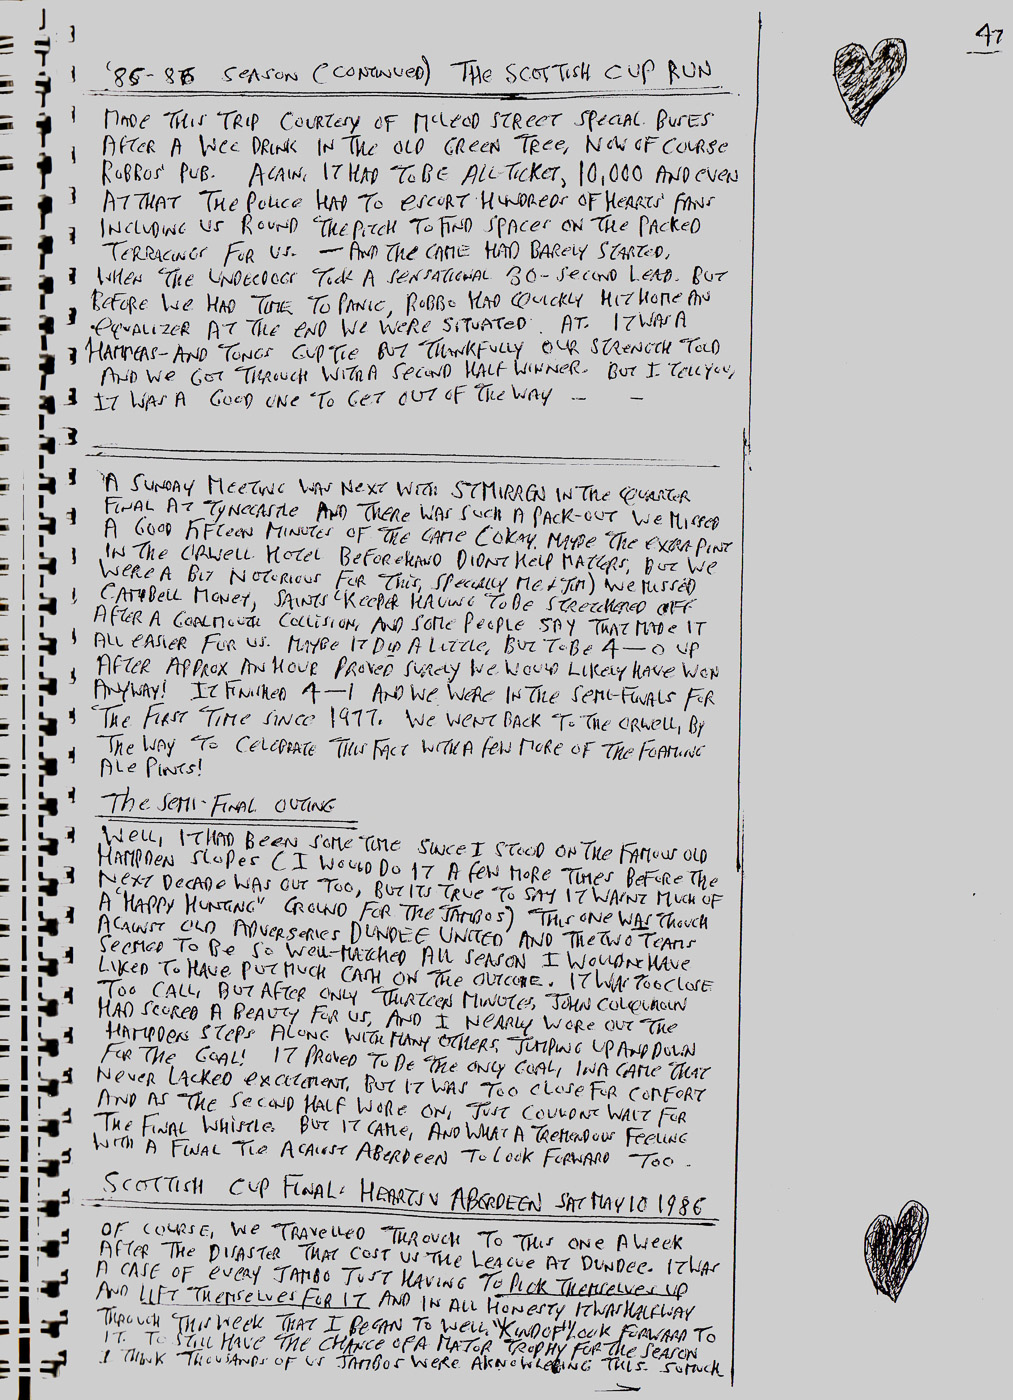 47
'85-86 SEASON (CONTINUED) THE SCOTTISH CUP RUN
MADE THIS TRIP COURTESY OF MCLEOD STREET SPECIAL BUSES
AFTER A WEE DRINK IN THE OLD GREEN TREE, NOW OF COURSE
ROBBOS' PUB. AGAIN, IT HAD TO BE ALL-TICKET, 10,000 AND EVEN
AT THAT THE POLICE HAD TO ESCORT HUNDREDS OF HEARTS FANS
INCLUDING US ROUND THE PITCH TO FIND SPACES ON THE PACKED
TERRACINGS FOR US. — AND THE GAME HAD BARELY STARTED,
WHEN THE UNDERDOGS TOOK A SENSATIONAL 30-SECOND LEAD. BUT
BEFORE WE HAD TIME TO PANIC, ROBBO HAD QUICKLY HIT HOME AN
EQUALIZER AT THE END WE WERE SITUATED AT. IT WAS A
HAMMERS-AND TONGS CUP TIE BUT THANKFULLY OUR STRENGTH TOLD
AND WE GOT THROUGH WITH A SECOND HALF WINNER. BUT I TELL YOU,
IT WAS A GOOD ONE TO GET OUT OF THE WAY — —
A SUNDAY MEETING WAS NEXT WITH ST MIRREN IN THE QUARTER
FINAL AT TYNECASTLE AND THERE WAS SUCH A PACK-OUT WE MISSED
A GOOD FIFTEEN MINUTES OF THE GAME (OKAY. MAYBE THE EXTRA PINT
IN THE ORWELL HOTEL BEFOREHAND DIDNT HELP MATTERS, BUT WE
WERE A BIT NOTORIOUS FOR THIS, SPECIALLY ME & JIM) WE MISSED
CAMPBELL MONEY, SAINTS KEEPER HAVING TO BE STRETCHERED OFF
AFTER A GOALMOUTH COLLISION, AND SOME PEOPLE SAY THAT MADE IT
ALL EASIER FOR US. MAYBE IT DID A LITTLE, BUT TO BE 4—0 UP
AFTER APPROX AN HOUR PROVED SURELY WE WOULD LIKELY HAVE WON
ANYWAY! IT FINISHED 4—1 AND WE WERE IN THE SEMI-FINALS FOR
THE FIRST TIME SINCE 1977. WE WENT BACK TO THE ORWELL, BY
THE WAY TO CELEBRATE THIS FACT WITH A FEW MORE OF THE FOAMING
ALE PINTS!
THE SEMI-FINAL OUTING
WELL, IT HAD BEEN SOME TIME SINCE I STOOD ON THE FAMOUS OLD
HAMPDEN SLOPES (I WOULD DO IT A FEW MORE TIMES BEFORE THE
NEXT DECADE WAS OUT TOO, BUT ITS TRUE TO SAY IT WASNT MUCH OF
A "HAPPY HUNTING" GROUND FOR THE JAMBOS) THIS ONE WAS THOUGH
AGAINST OLD ADVERSERIES DUNDEE UNITED AND THE TWO TEAMS
SEEMED TO BE SO WELL-MATCHED ALL SEASON I WOULDNT HAVE
LIKED TO HAVE PUT MUCH CASH ON THE OUTCOME. IT WAS TOO CLOSE
TOO CALL, BUT AFTER ONLY THIRTEEN MINUTES, JOHN COLQUHOUN
HAD SCORED A BEAUTY FOR US, AND I NEARLY WORE OUT THE
HAMPDEN STEPS ALONG WITH MANY OTHERS, JUMPING UP AND DOWN
FOR THE GOAL! IT PROVED TO BE THE ONLY GOAL, IN A GAME THAT
NEVER LACKED EXCITEMENT, BUT IT WAS TOO CLOSE FOR COMFORT
AND AS THE SECOND HALF WORE ON, JUST COULDNT WAIT FOR
THE FINAL WHISTLE. BUT IT CAME, AND WHAT A TREMENDOUS FEELING
WITH A FINAL TIE AGAINST ABERDEEN TO LOOK FORWARD TOO.
SCOTTISH CUP FINAL: HEARTS V ABERDEEN SAT MAY 10 1986
OF COURSE, WE TRAVELLED THROUGH TO THIS ONE A WEEK
AFTER THE DISASTER THAT COST US THE LEAGUE AT DUNDEE. IT WAS
A CASE OF EVERY JAMBO JUST HAVING TO PICK THEMSELVES UP
AND LIFT THEMSELVES FOR IT AND IN ALL HONESTY IT WAS HALFWAY
THROUGH THIS WEEK THAT I BEGAN TO WELL, "KIND OF" LOOK FORWARD TO
IT. TO STILL HAVE THE CHANCE OF A MAJOR TROPHY FOR THE SEASON
I THINK THOUSANDS OF US JAMBOS WERE AKNOWLEGING THIS. SO MUCH